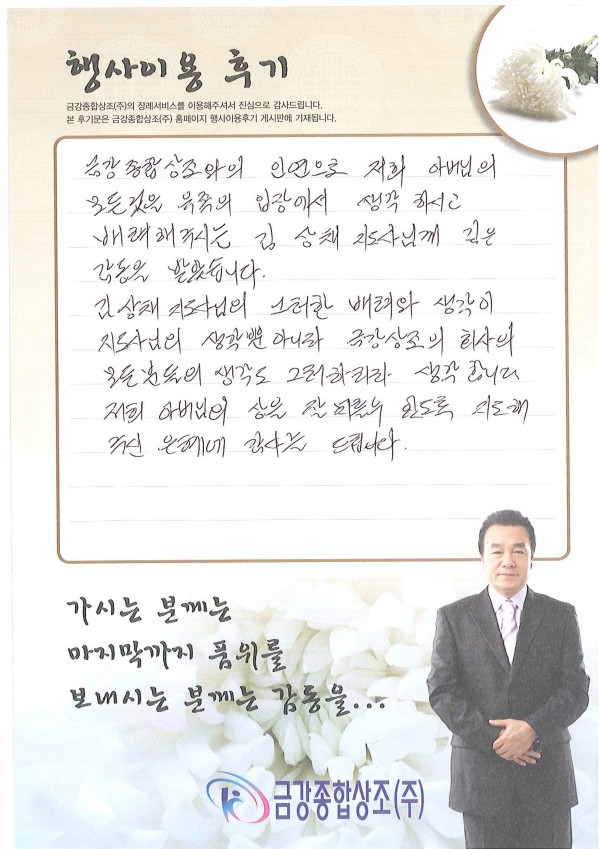 행사이용 후기
금강종합상조(주)의 장례서비스를 이용해주셔서 진심으로 감사드립니다.
본 후기문은 금강종합상조(주) 홈페이지 행사이용후기 게시판에 기재됩니다.
금강종합상조와의 인연으로 저희 아버님의
모든것을 유족의 입장에서 생각 하시고
배려해주시는 김상채 지도사님께 깊은
감동을 받았습니다.
김상채 지도사님의 그러한 배려와 생각이
지도사님의 생각뿐 아니라 금강상조의 회사의
모든분들의 생각도 그러하리라 생각합니다
저희 아버님의 상을 잘 치를수 있도록 지도해
주신 은혜에 감사를 드립니다.
가시는 분께는
마지막까지 품위를
보내시는 분께는 감동을...
금강종합상조(주)